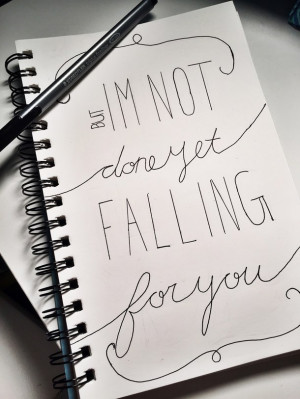 BUT IM NOT
done yet
FALLING
for you